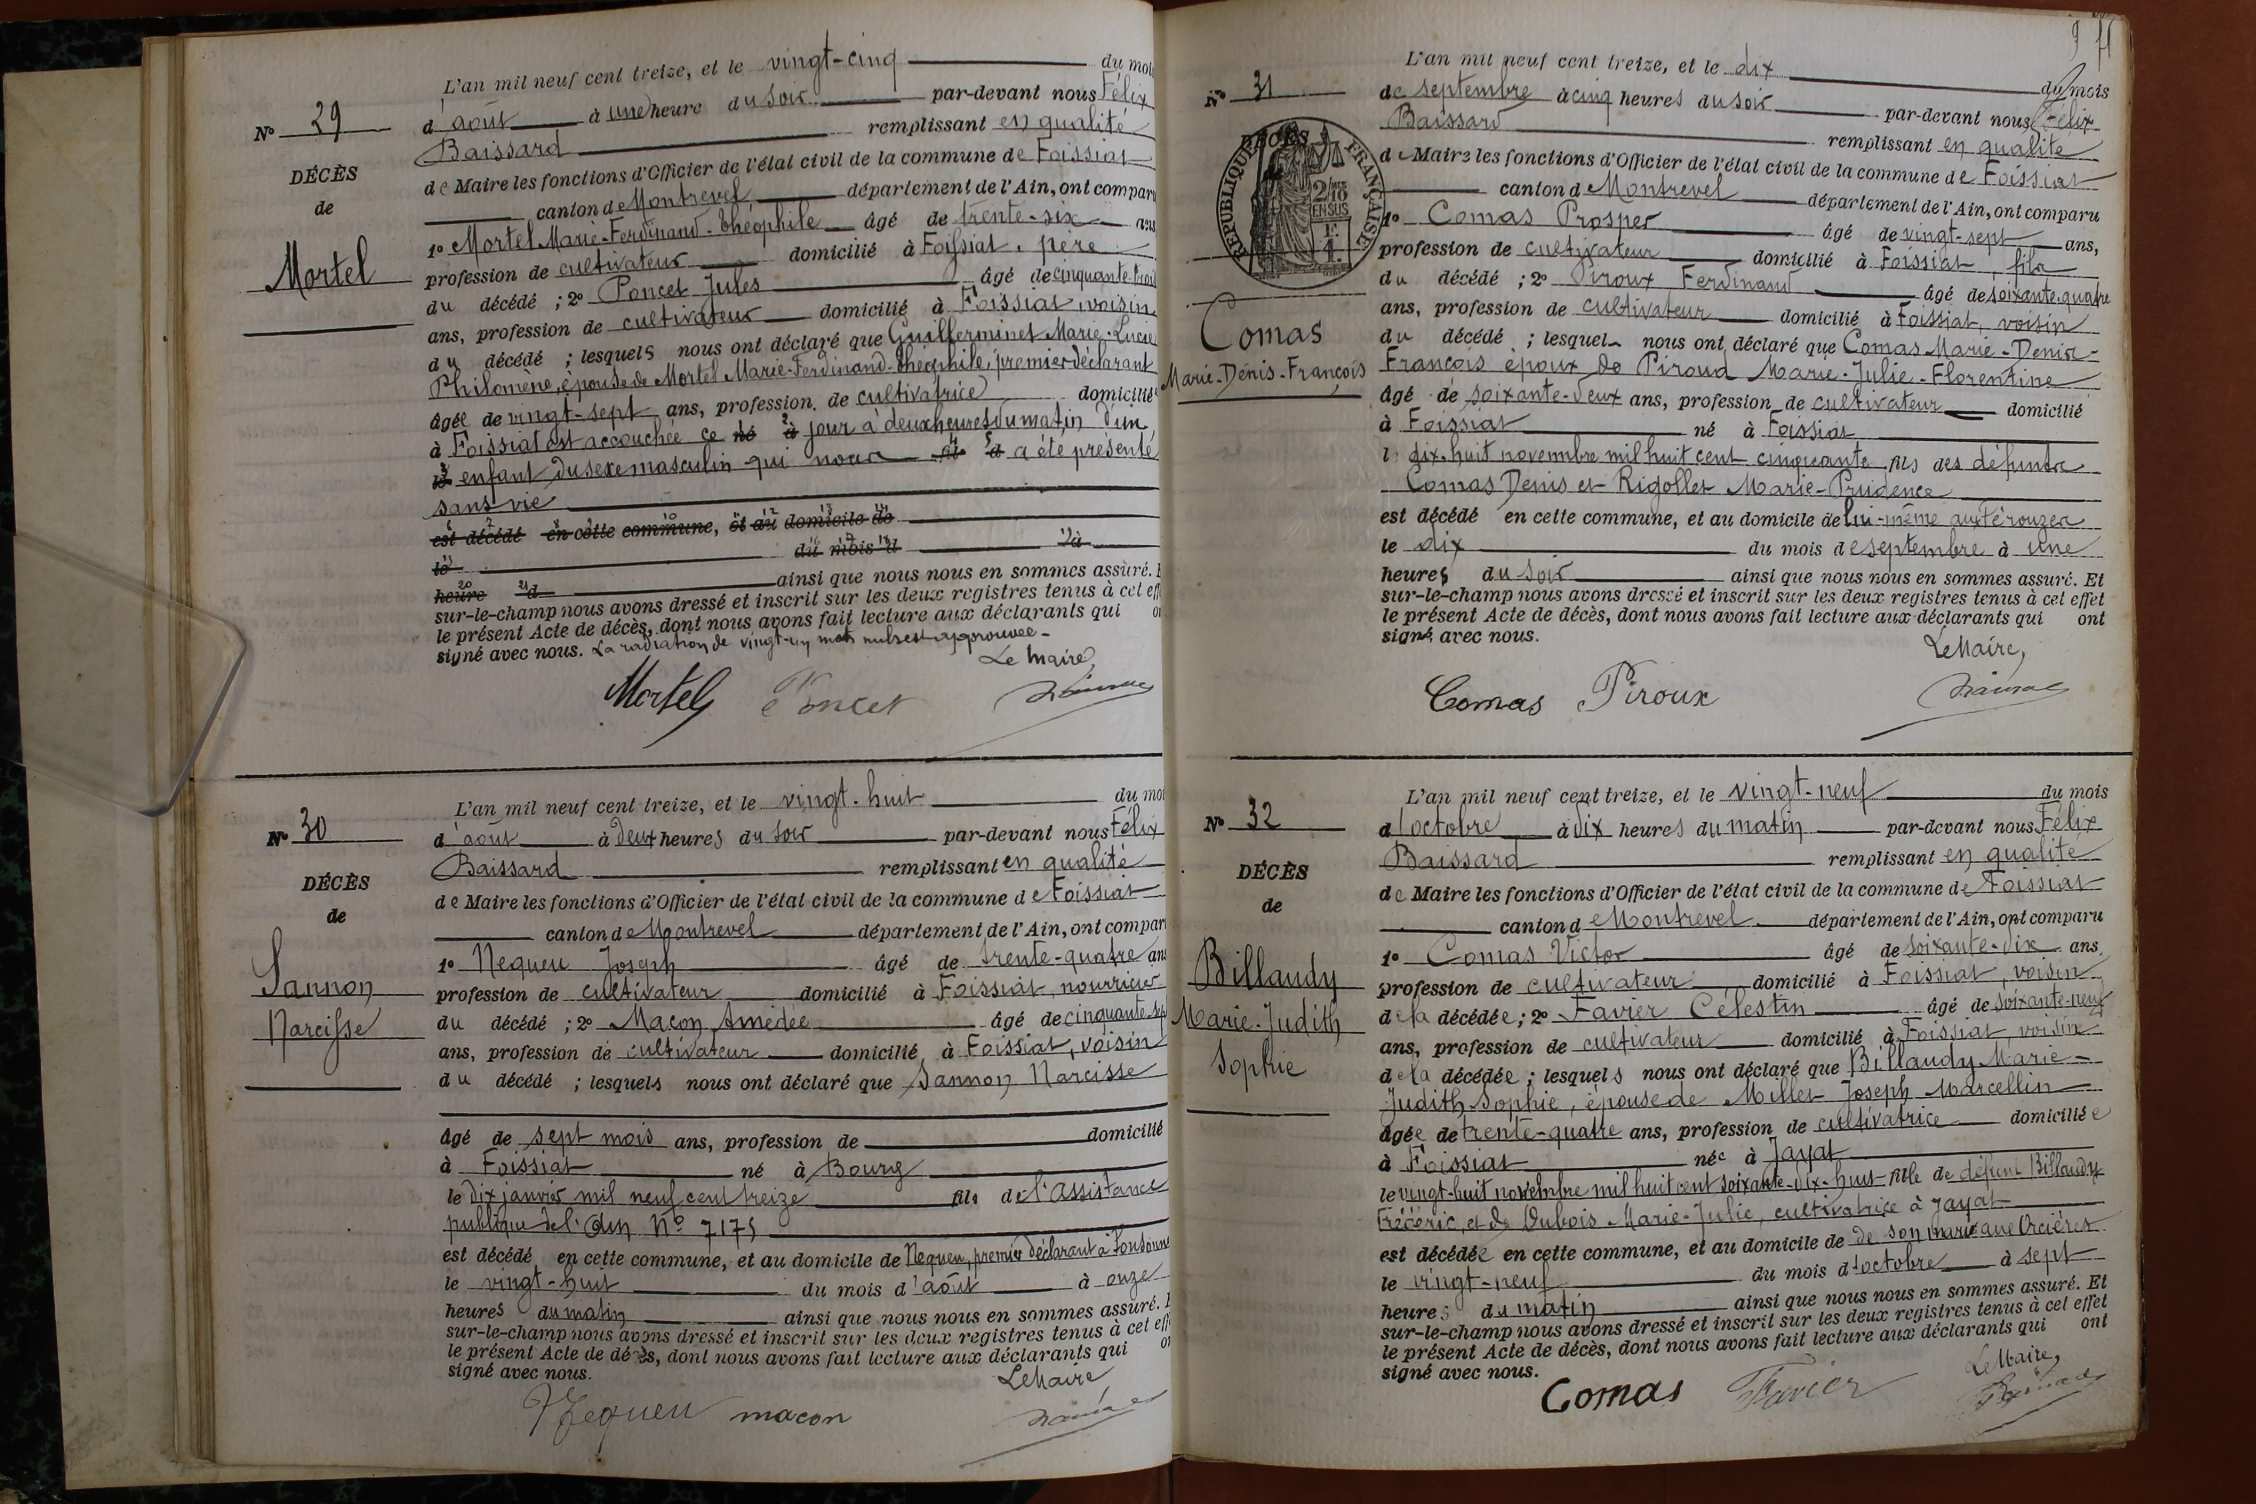 L'an mil neuf cent treize, et le vingt-cinq du moi
N° 29
d'août à une heure du soir par-devant nous Félix
Baissard remplissant en qualité
DÉCÈS
de Maire les fonctions d'Officier de l'état civil de la commune de Foissiat
de
canton de Montrevel département de l'Ain, ont compar
1° Mortel Marie-Ferdinand-Théophile âgé de trente-six ans
Mortel
profession de cultivateur domicilié à Foissiat, père
du décédé ; 2° Poncet Jules âgé de cinquante-trois
ans, profession de cultivateur domicilié à Foissiat, voisin
du décédé ; lesquels nous ont déclaré que Guillerminet Marie-Lucie
Philomène, épouse de Mortel Marie-Ferdinand-Théophile, premier déclarant
âgée de vingt-sept ans, profession de cultivatrice domicilié
à Foissiat est accouchée ce né à jour à deux heures du matin d'un
le enfant du sexe masculin qui nous a été présenté
sans vie
est décédé en cette commune, et au domicile de
le du mois d à
heure d ainsi que nous nous en sommes assuré. E
sur-le-champ nous avons dressé et inscrit sur les deux registres tenus à cet eff
le présent Acte de décès, dont nous avons fait lecture aux déclarants qui on
signé avec nous. La radiation de vingt-un mots nuls est approuvée-
Le Maire,
Mortel Poncet
L'an mil neuf cent treize, et le vingt-huit du moi
N° 30
d'août à deux heures du soir par-devant nous Félix
Baissard remplissant en qualité
DÉCÈS
de Maire les fonctions d'Officier de l'état civil de la commune de Foissiat
de
canton de Montrevel département de l'Ain, ont compar
Sannon
1° Nequeu Joseph âgé de trente-quatre ans
profession de cultivateur domicilié à Foissiat, nourricier
Narcisse
du décédé ; 2° Macon Amédée âgé de cinquante-sep
ans, profession de cultivateur domicilié à Foissiat, voisin
du décédé ; lesquels nous ont déclaré que Sannon Narcisse
âgé de sept mois ans, profession de domicilié
à Foissiat né à Bourg
le dix janvier mil neuf cent treize fils de l'Assistance
publique de l'Ain N° 7175
est décédé en cette commune, et au domicile de Nequeu, premier déclarant à
le vingt-huit du mois d'août à onze
heures du matin ainsi que nous nous en sommes assuré. E
sur-le-champ nous avons dressé et inscrit sur les deux registres tenus à cet eff
le présent Acte de décès, dont nous avons fait lecture aux déclarants qui on
signé avec nous.
Le Maire
Nequeu macon
L'an mil neuf cent treize, et le dix du mois
N° 31
de septembre à cinq heures du soir par-devant nous Félix
Baissard remplissant en qualité
DÉCÈS
RÉPUBLIQUE FRANÇAISE
2/10 EN SUS
1 F.
de Maire les fonctions d'Officier de l'état civil de la commune de Foissiat
canton de Montrevel département de l'Ain, ont comparu
1° Comas Prosper âgé de vingt-sept ans,
profession de cultivateur domicilié à Foissiat, fils
du décédé ; 2° Piroux Ferdinand âgé de soixante-quatre
ans, profession de cultivateur domicilié à Foissiat, voisin
Comas
Marie-Denis-François
du décédé ; lesquels nous ont déclaré que Comas Marie-Denis-
François époux de Piroud Marie-Julie-Florentine
âgé de soixante-deux ans, profession de cultivateur domicilié
à Foissiat né à Foissiat
le dix-huit novembre mil huit cent cinquante fils des défunts
Comas Denis et Rigollet Marie-Prudence
est décédé en cette commune, et au domicile de lui-même aux Férouzes
le dix du mois de septembre à une
heures du soir ainsi que nous nous en sommes assuré. Et
sur-le-champ nous avons dressé et inscrit sur les deux registres tenus à cet effet
le présent Acte de décès, dont nous avons fait lecture aux déclarants qui ont
signé avec nous.
Le Maire,
Comas Piroux
L'an mil neuf cent treize, et le vingt-neuf du mois
N° 32
d'octobre à dix heures du matin par-devant nous Félix
Baissard remplissant en qualité
DÉCÈS
de Maire les fonctions d'Officier de l'état civil de la commune de Foissiat
de
canton de Montrevel département de l'Ain, ont comparu
1° Comas Victor âgé de soixante-dix ans,
Billaudy
Marie-Judith
Sophie
profession de cultivateur domicilié à Foissiat, voisin
de la décédée ; 2° Favier Célestin âgé de soixante-neuf
ans, profession de cultivateur domicilié à Foissiat, voisin
de la décédée ; lesquels nous ont déclaré que Billaudy Marie-
Judith Sophie, épouse de Millet Joseph Marcellin
âgée de trente-quatre ans, profession de cultivatrice domiciliée
à Foissiat née à Jayat
le vingt-huit novembre mil huit cent soixante-dix-huit fille de défunt Billaudy
Frédéric, et de Dubois Marie-Julie, cultivatrice à Jayat
est décédée en cette commune, et au domicile de de son mari aux Orcières
le vingt-neuf du mois d'octobre à sept
heures du matin ainsi que nous nous en sommes assuré. Et
sur-le-champ nous avons dressé et inscrit sur les deux registres tenus à cet effet
le présent Acte de décès, dont nous avons fait lecture aux déclarants qui ont
signé avec nous.
Le Maire,
Comas Favier